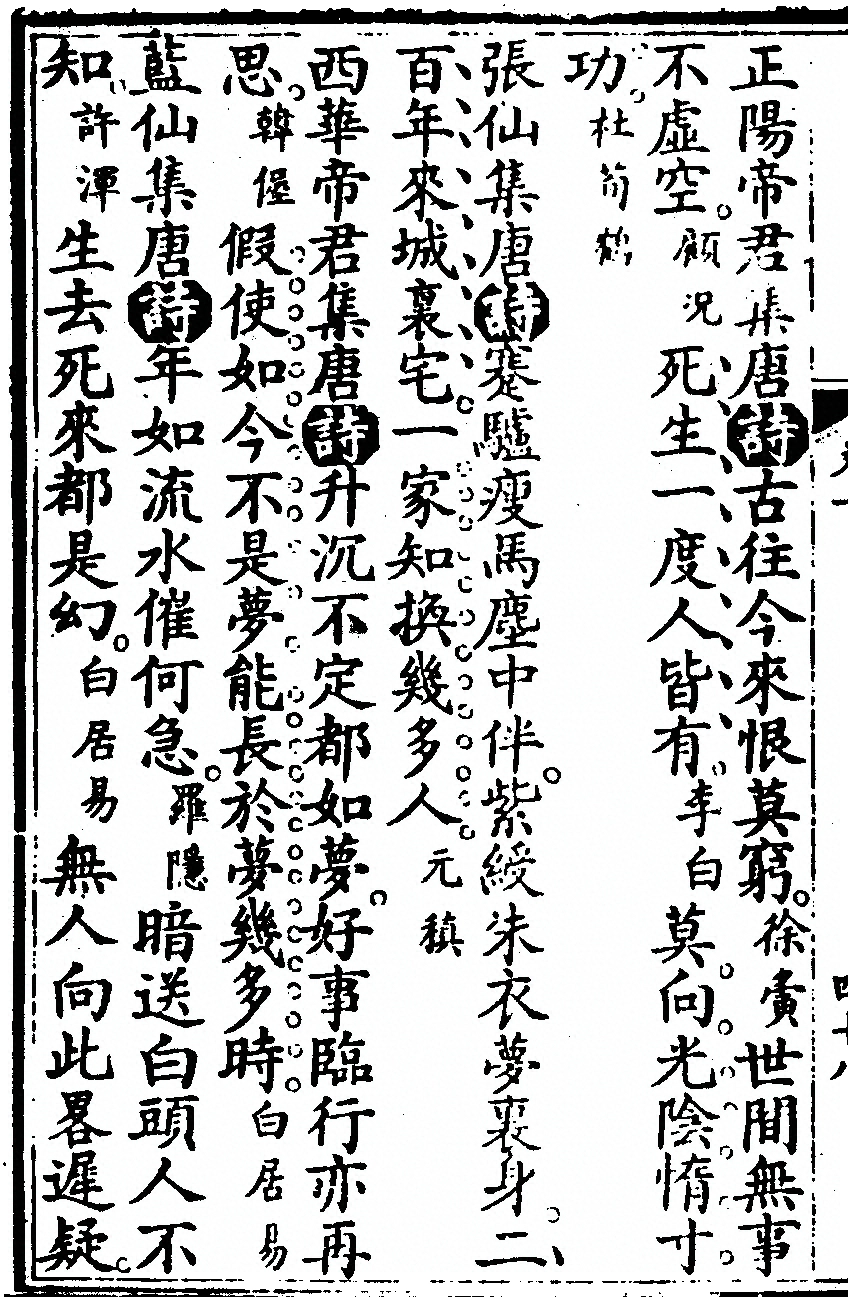 正陽帝君集唐詩古往今來恨莫窮徐夤世間無事
不虛空顧況死生一度人皆有李白莫向光陰惰寸
功杜荀鶴
張仙集唐詩蹇驢瘦馬塵中伴紫綬朱衣夢裏身二
百年來城裏宅一家知換幾多人元稹
西華帝君集唐詩升沉不定都如夢好事臨行亦再
思韓偓假使如今不是夢能長於夢幾多時白居易
藍仙集唐詩年如流水催何急羅隱暗送白頭人不
知許渾生去死來都是幻白居易無人向此畧遲疑